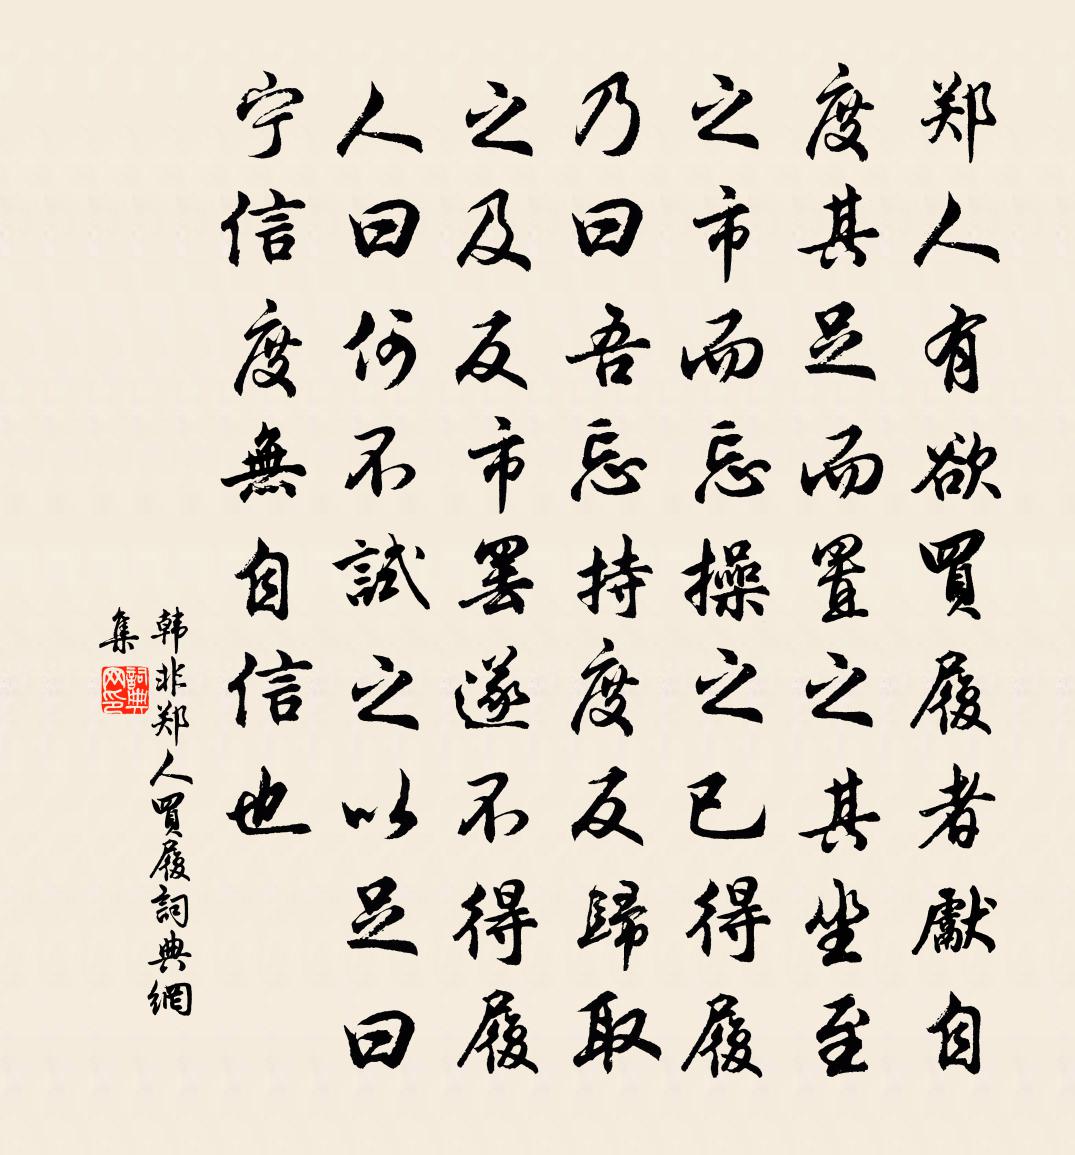 郑人有欲買履者獻自
度其足而置之其坐至
之市而忘操之已得履
乃曰吾忘持度反歸取
之及反市罢遂不得履
人曰何不試之以足曰
宁信度無自信也
韩非郑人買履詞典網
集
詞典
网印